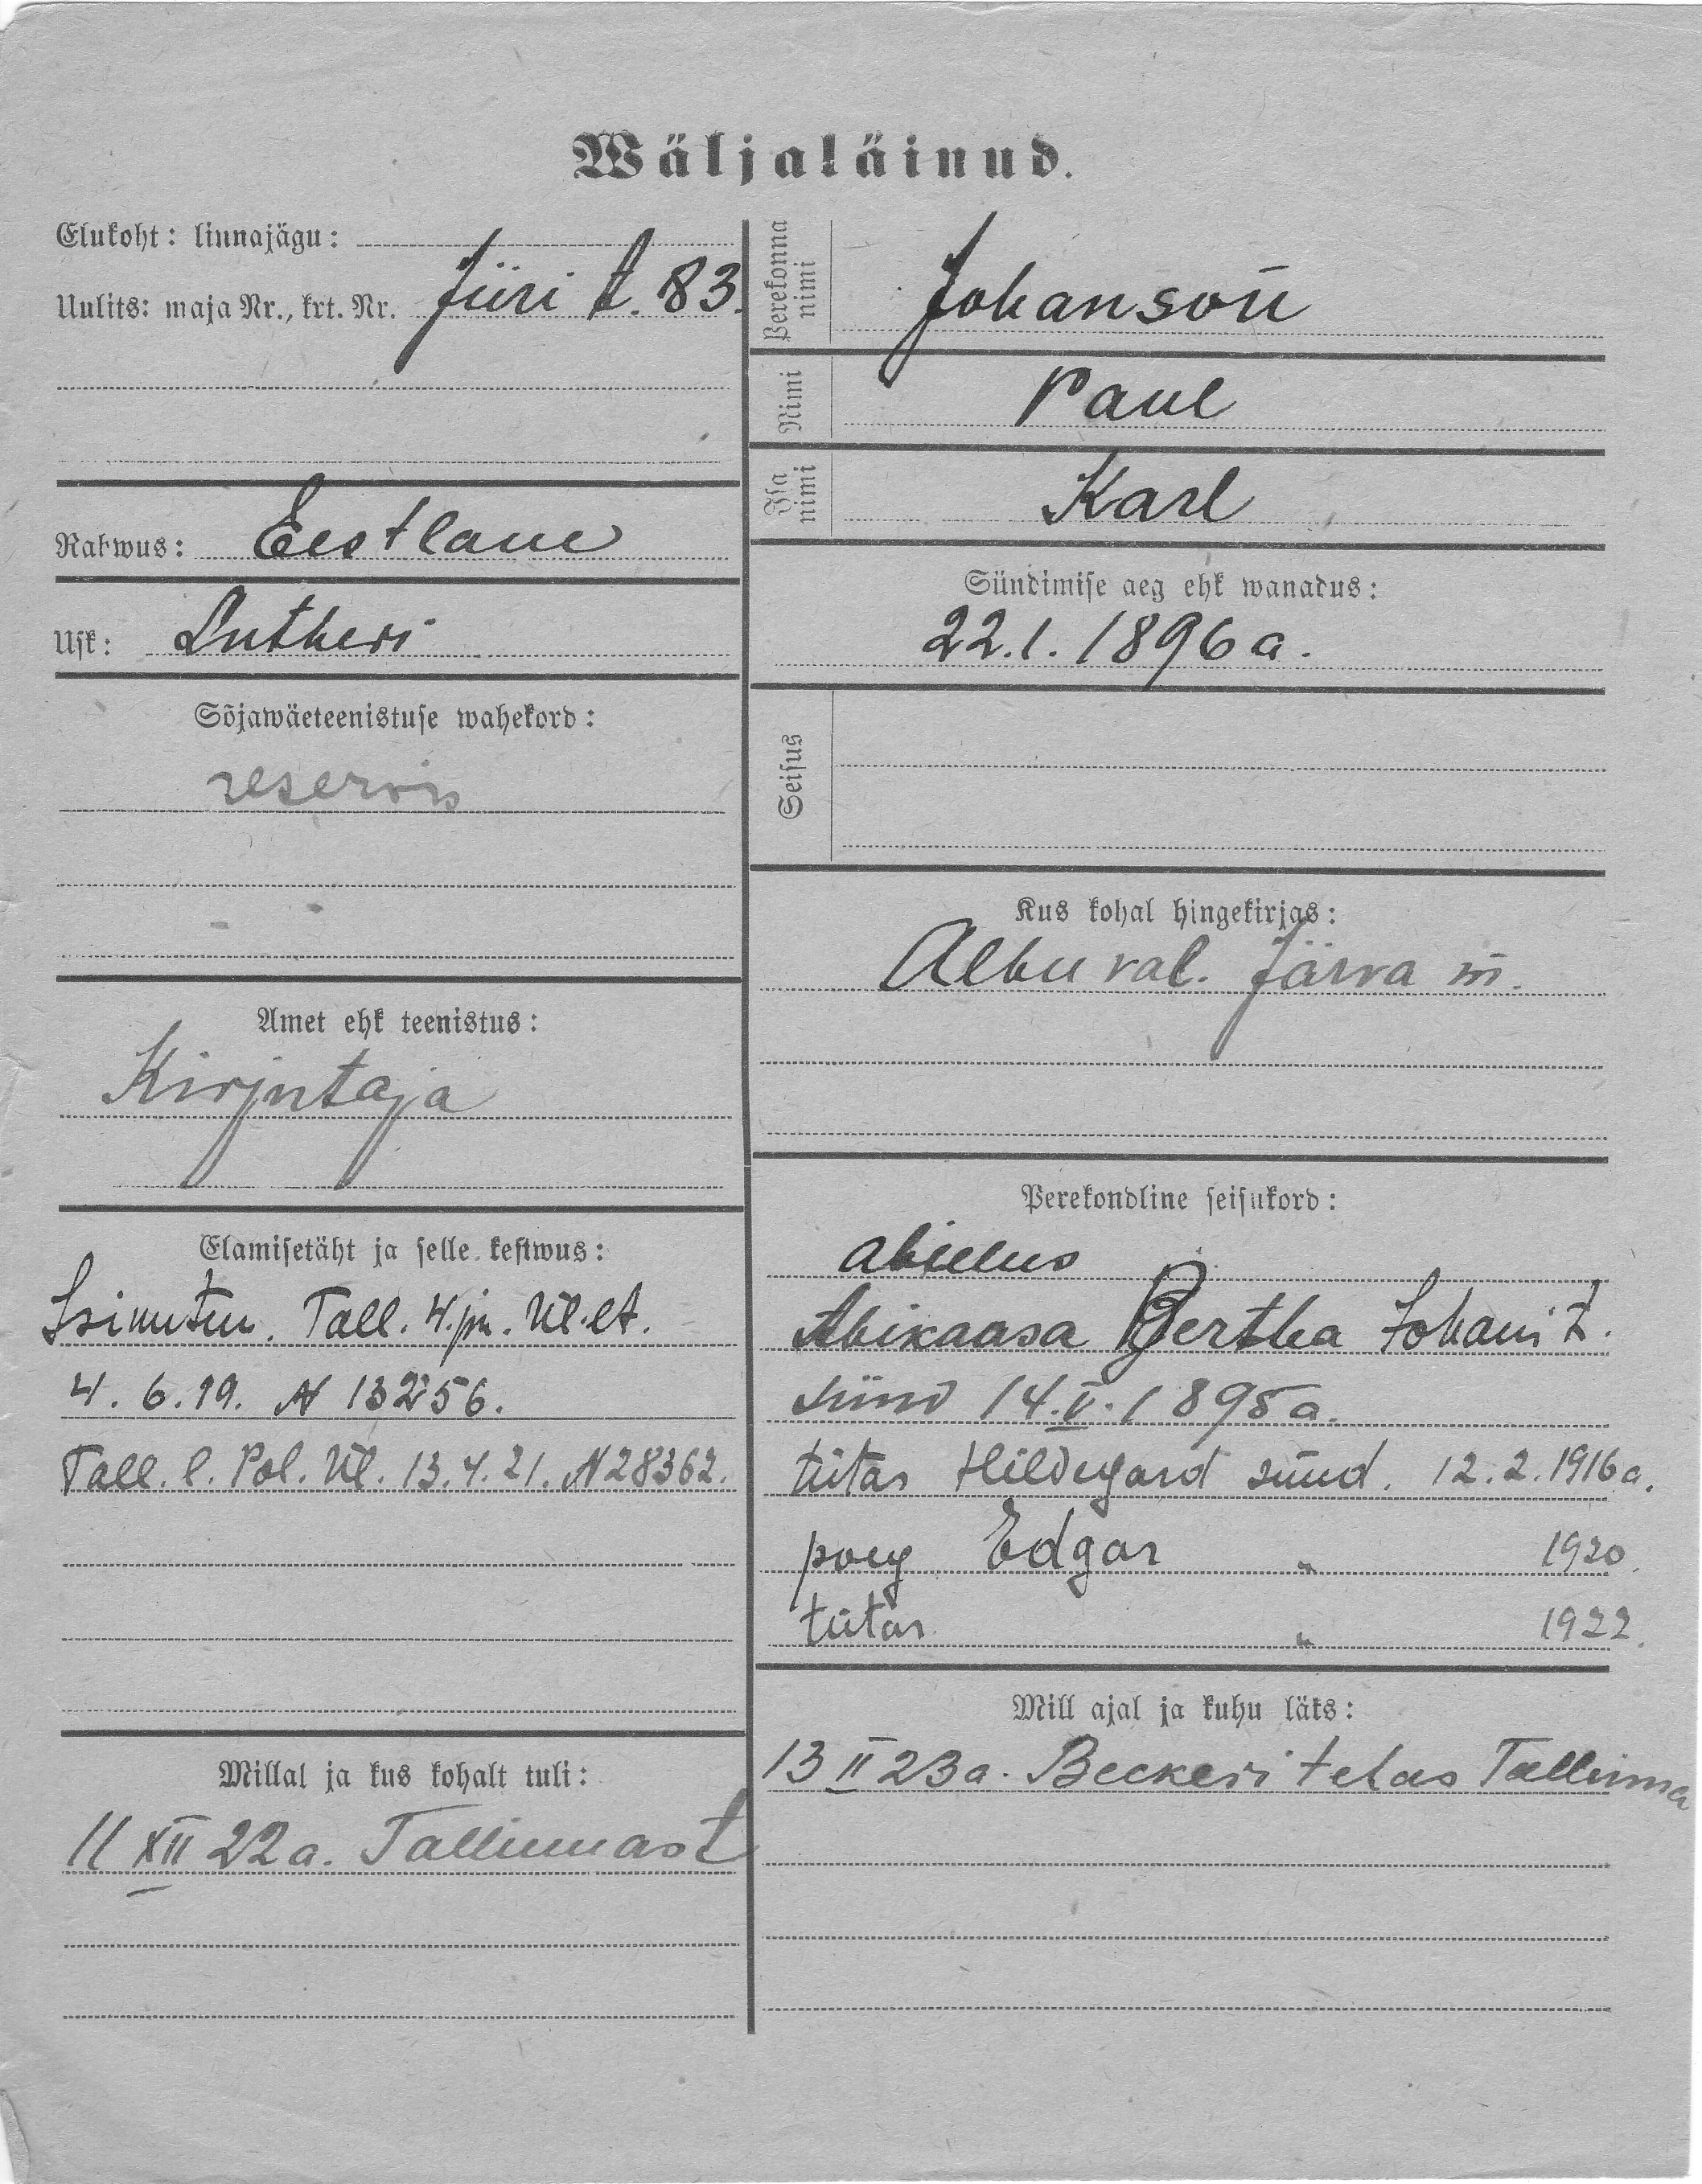 Wäljaläinud.
Elukoht: linnajägu:
Uulits: maja Nr., krt. Nr. Jüri t. 83.
Rahwus: Eestlane
Usk: Lutheri
Sõjawäeteenistuse wahekord:
reservis
Amet ehk teenistus:
Kirjutaja
Elamisetäht ja selle kestwus:
Isikutun. Tall. 4. jn. Ül. lt.
4. 6. 19. N 13256.
Tall. l. Pol. Ül. 13. 4. 21. N 28362.
Millal ja kus kohalt tuli:
11 XII 22 a. Tallinnast
Perekonna nimi Johanson
Nimi Paul
Isa nimi Karl
Sündimise aeg ehk wanadus:
22. 1. 1896 a.
Seisus
Kus kohal hingekirjas:
Albu val. Järva m.
Perekondline seisukord:
abielus
Abikaasa Bertha Johani t.
sünd 14. V. 1898 a.
tütar Hildegard sünd. 12. 2. 1916 a.
poeg Edgar " 1920.
tütar " 1922.
Mill ajal ja kuhu läks:
13 II 23 a. Beckeri tehas Tallinna